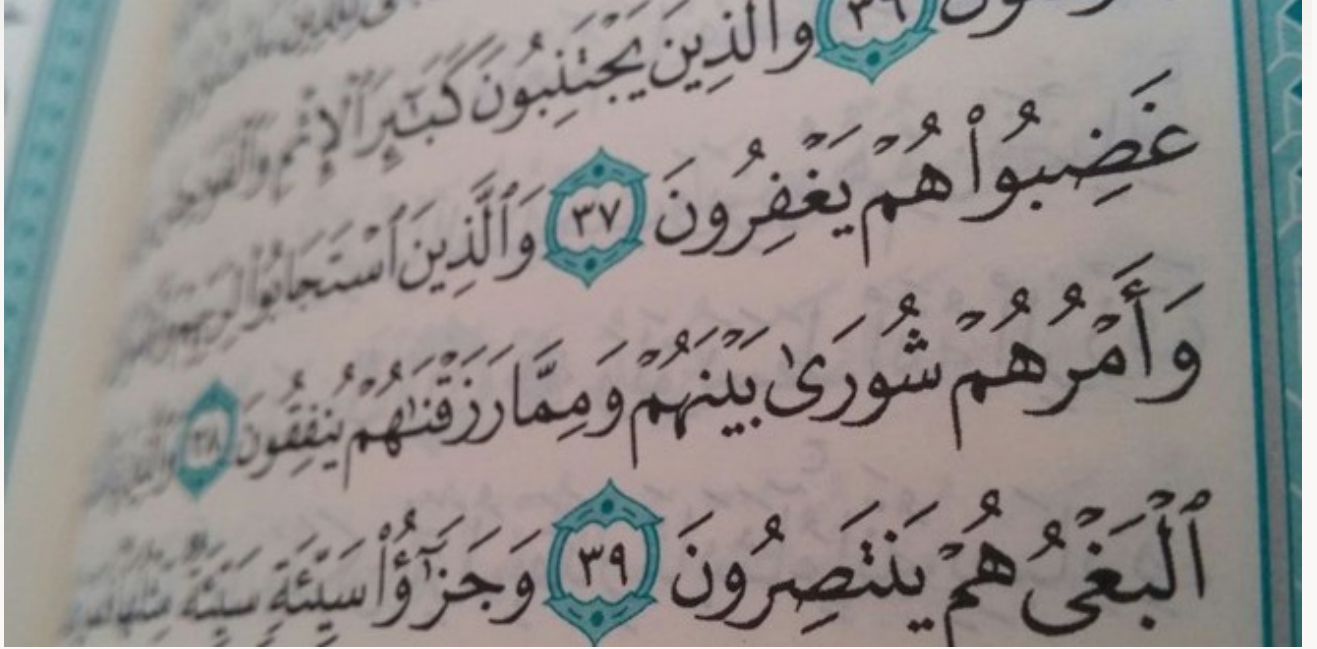 ٣٦ وَٱلَّذِينَ يَجْتَنِبُونَ كَبَٰٓئِرَ ٱلْإِثْمِ وَٱلْفَوَٰحِشَ
غَضِبُوا۟ هُمْ يَغْفِرُونَ ٣٧ وَٱلَّذِينَ ٱسْتَجَابُوا۟ لِرَبِّهِمْ
وَأَمْرُهُمْ شُورَىٰ بَيْنَهُمْ وَمِمَّا رَزَقْنَٰهُمْ يُنفِقُونَ ٣٨ وَٱلَّذِينَ
ٱلْبَغْىُ هُمْ يَنتَصِرُونَ ٣٩ وَجَزَٰٓؤُا۟ سَيِّئَةٍ سَيِّئَةٌ مِّثْلُهَا